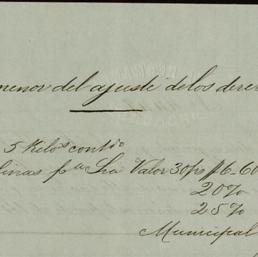 menor del ajuste de los dere
5 Kilos contdo
linas pa Sra Valor 30ps $6-60
20%
25%
Municipal